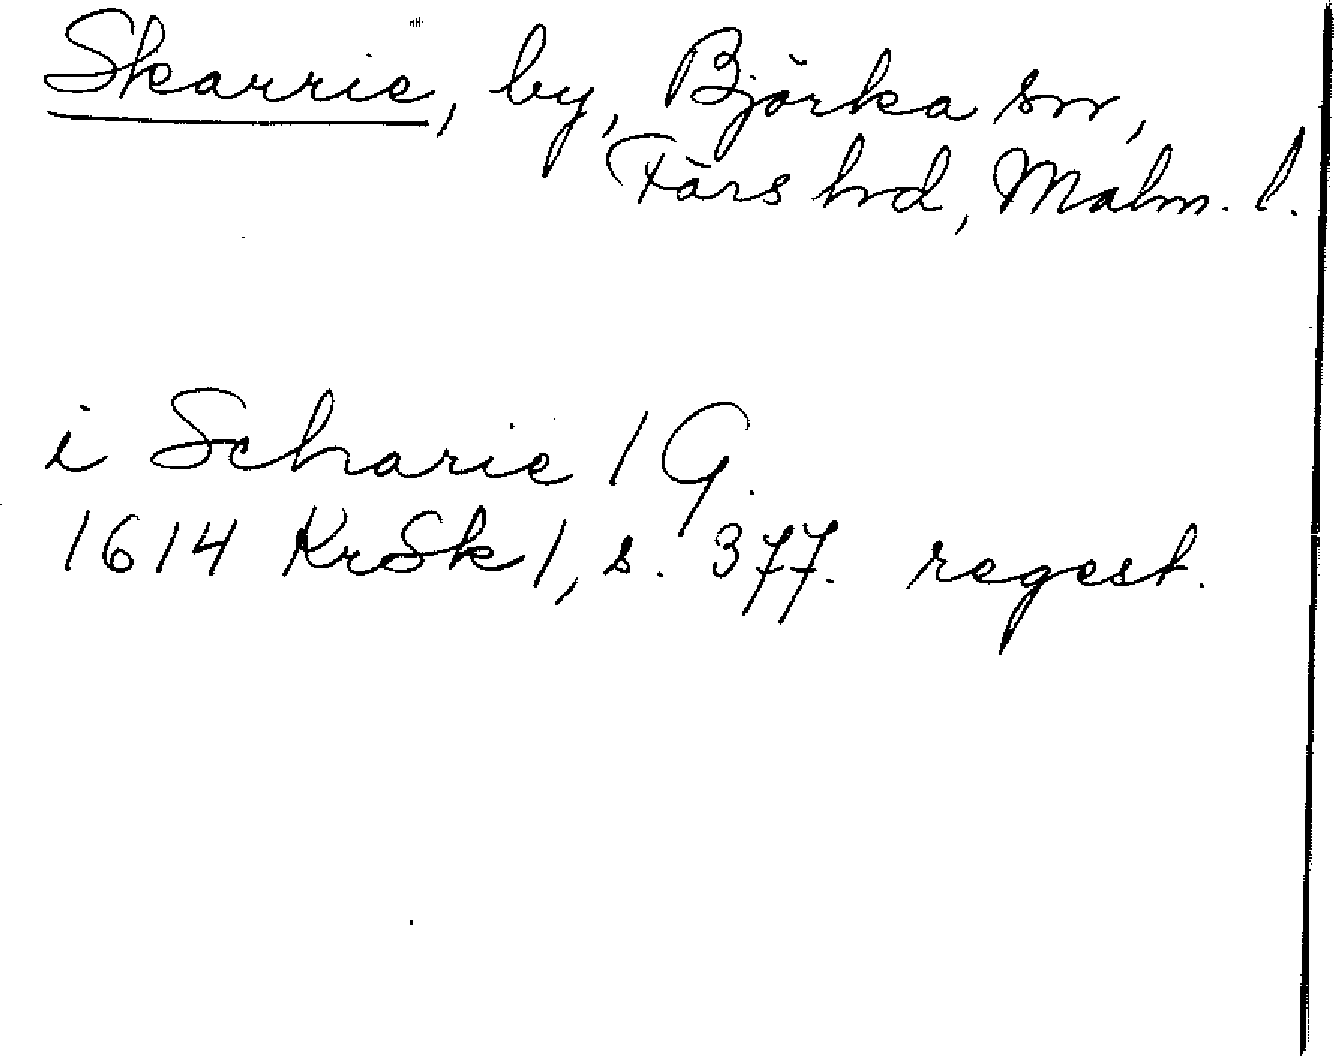 Skarrie, by, Björka sn,
Färs hd, Malm. l.
i Scharie 1 G.
1614 KrSk 1, s. 377. regest.